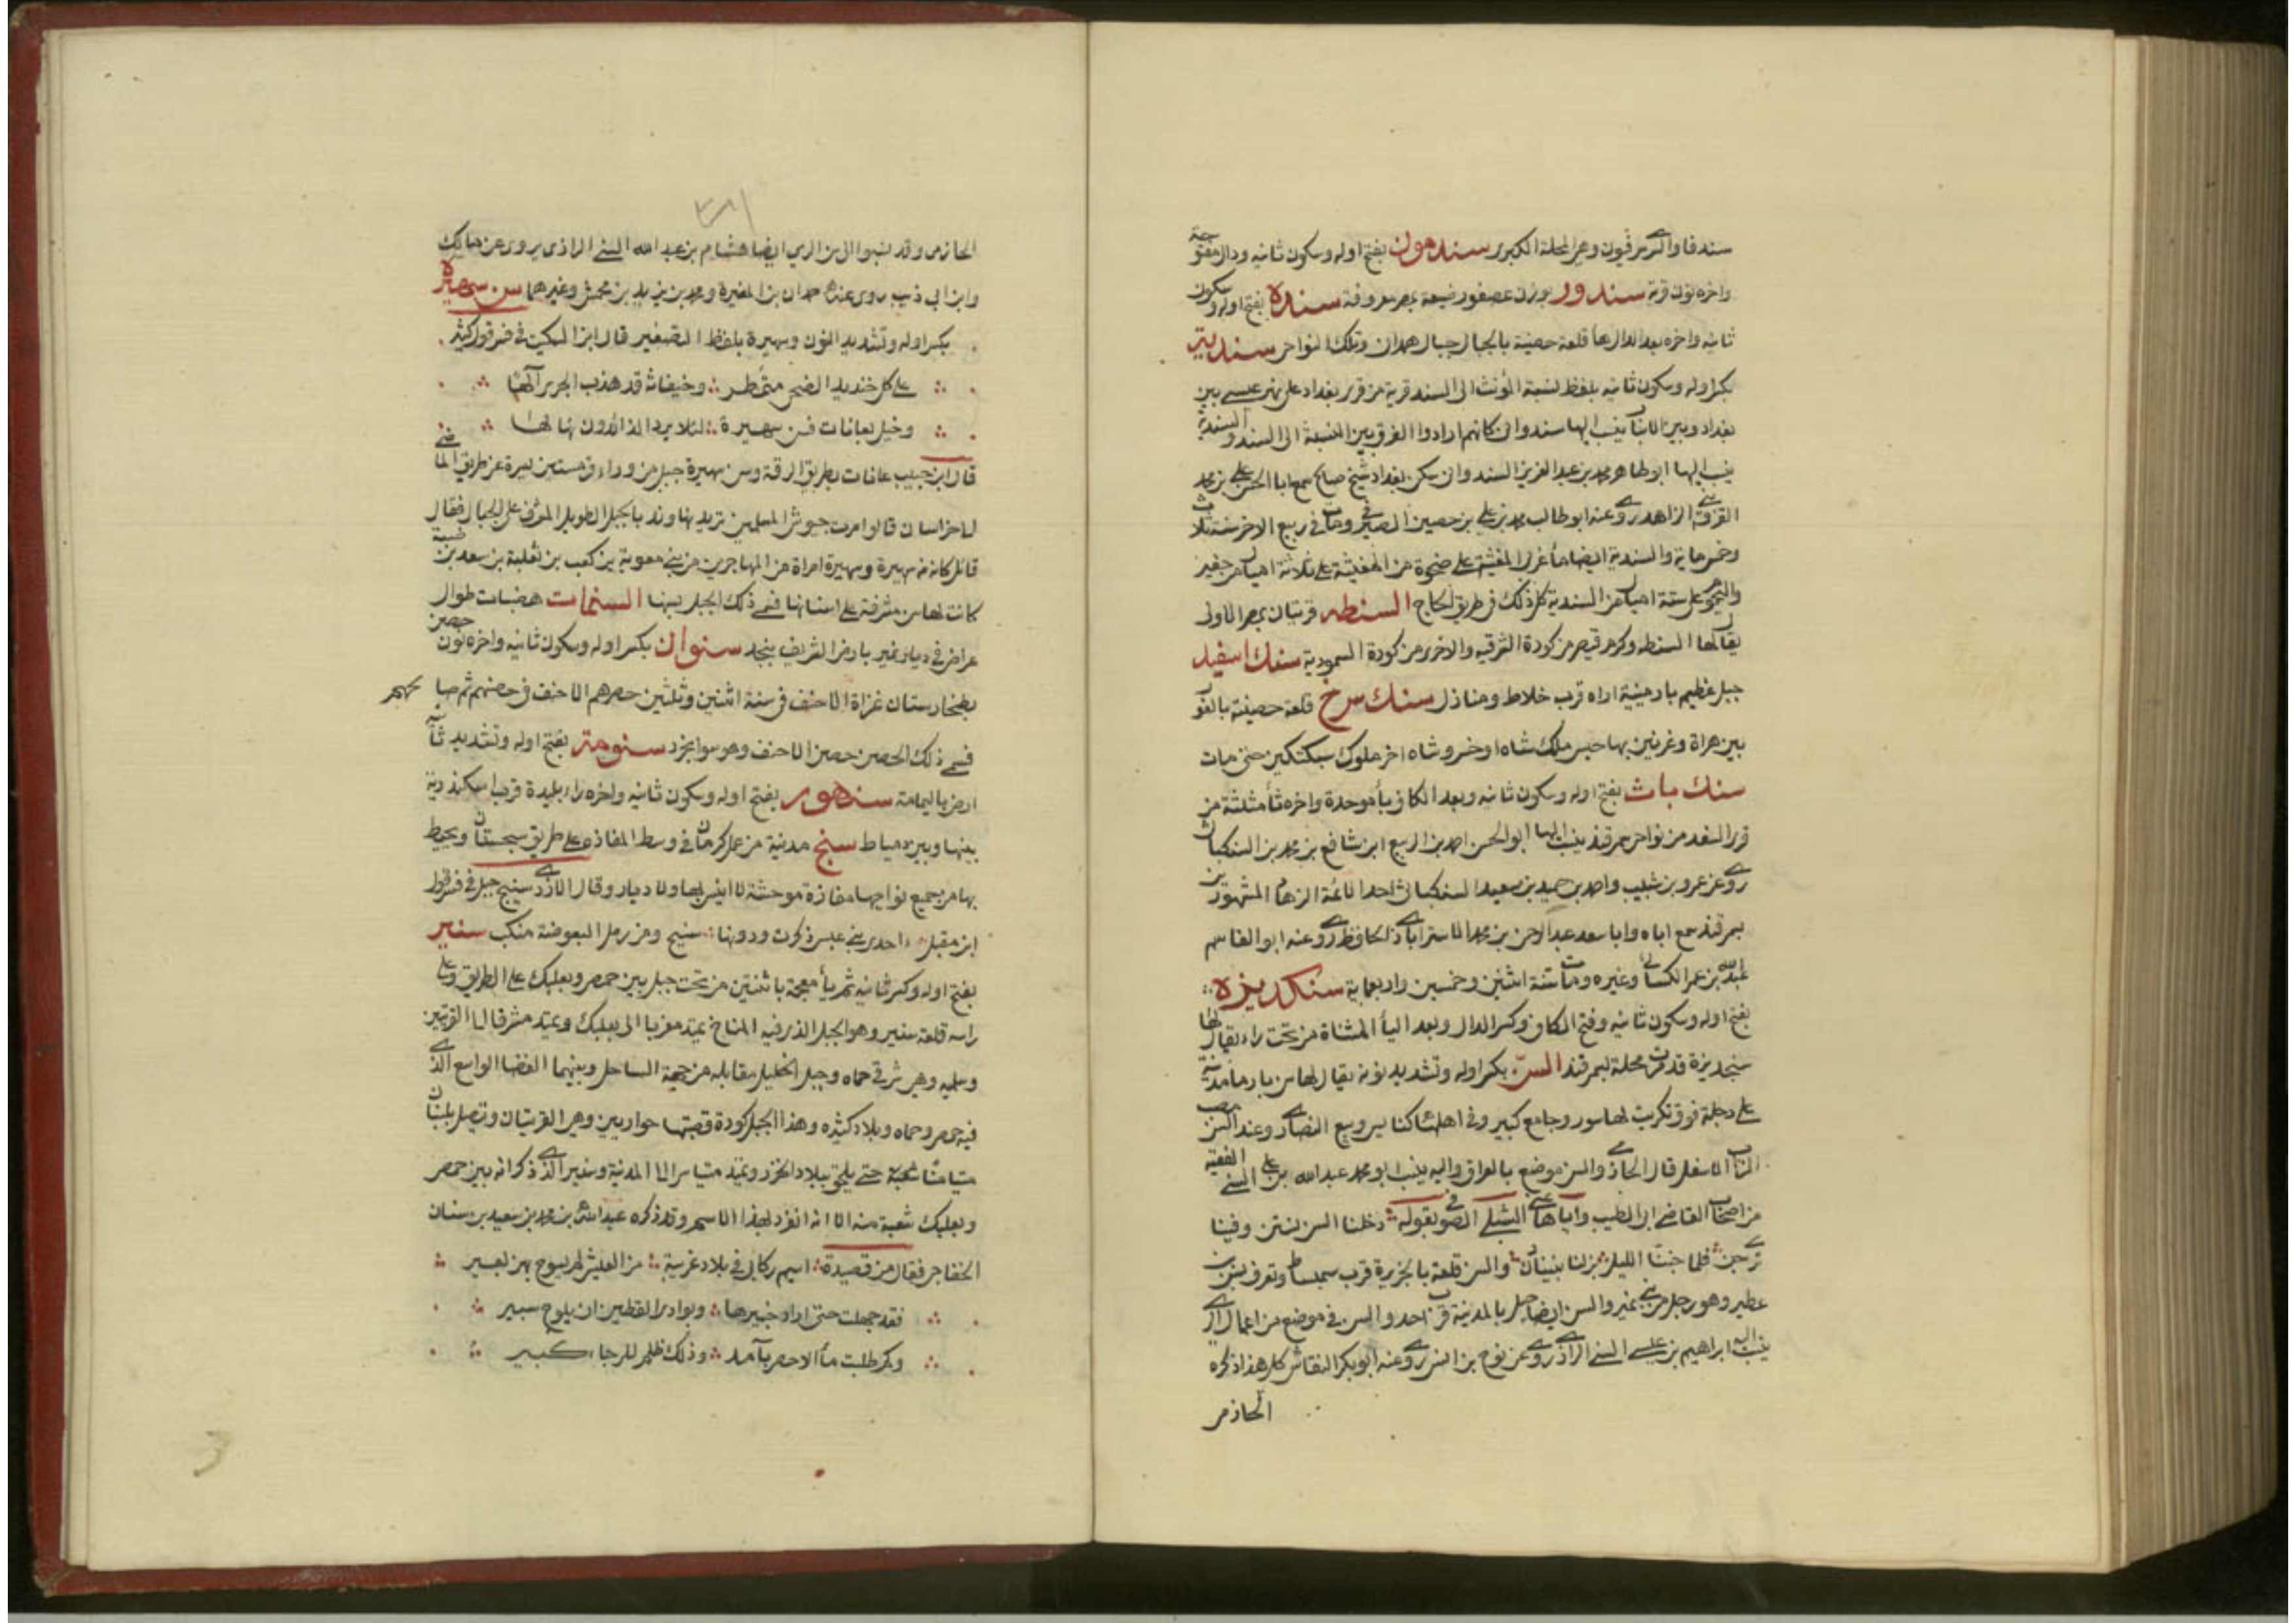 سندفا والسرسرقيون وهى المحلة الكبرى سندمون بفتح اوله وسكون ثانيه ودال مفتوحة
واخره نون قرية سندور بوزن عصفور ضيعة بمصر معروفة سنده بفتح اوله وسكون
ثانيه واخره بعد الدال ها قلعة حصينة بالجبال جبال همدان وتلك النواحى سنديه
بكسر اوله وسكون ثانيه بلفظ نسبة المؤنث الى السند قرية من قرى بغداد على نهر عيسى بين
بغداد وبين الانبار ينسب اليها سندوانى كانهم ارادوا الفرق بين النسبة الى السند والسندية
ينسب اليها ابو طاهر محمد بن عبد العزيز السندوانى سكن بغداد شيخ صالح سمع ابا الحسن على بن محمد
القزوينى الزاهد روى عنه ابو طالب محمد بن على بن حصين الصيرفى ومات فى ربيع الاخر سنة ثلاث
وخمسماية والسندية ايضا ماء غربى المغيثة على ضحوة من المغيثة على ثلاثة اميال من حفير
على ستة اميال من السندية كل ذلك فى طريق الحاج السنطه قريتان بمصر الاولى
يقال لها السنطه وكوم قيصر من كورة الشرقيه والاخرى من كورة السمنودية سنك اسفيد
جبل عظيم بارمينية اراه قرب خلاط ومنازل سنك سرخ قلعة حصينة بالغور
بين هراة وغزنين بها حبس ملك شاه او خسرو شاه اخر ملوك سبكتكين حتى مات
سنك باث بفتح اوله وسكون ثانيه وبعد الكاف باء موحدة واخره ثاء مثلثة من
قرى السغد من نواحى سمرقند ينسب اليها ابو الحسن احمد بن الربيع ابن شافع بن محمد بن السنكباثى
روى عن عمرو بن شبيب واحمد بن حميد بن سعيد السنكباثى احد الائمة الزهاد المشهورين
بسمرقند سمع اباه وابا سعد عبد الرحمن بن محمد الاستراباذى الحافظ روى عنه ابو القاسم
عبيد الله بن عمر الكسائى وغيره ومات سنة اثنين وخمسين واربعماية سنكديزه
بفتح اوله وسكون ثانيه وفتح الكاف وكسر الدال وبعد الياء المثناة من تحت زاء يقال لها
سنجديزة محلة بسمرقند السن بكسر اوله وتشديد نونه يقال لها سن بارما مدينة
على دجلة فوق تكريت لها سور وجامع كبير وفى اهلها كنايس وبيع النصارى وعند السن يصب
الزاب الاسفل قال الحازمى والسن موضع بالعراق واليه ينسب ابو محمد عبد الله بن على السنى الفقيه
من اصحاب القاضى ابى الطيب واياها عنى الشبلى الصوفى بقوله دخلنا السن نستن وفينا
من يرجحن فلما جننا الليل نزلنا بنينان والسن قلعة بالجزيرة قرب سميساط وتعرف بسن ابن
عطير وهو رجل من بنى نمير والسن ايضا جبل بالمدينة قرب احد والسن فى موضع من اعمال الرى
ينسب اليه ابراهيم بن عيسى السنى الرازى روى عن نوح بن انس روى عنه ابو بكر النقاش كل هذا ذكره
الحازمى
٣٨١
الحازمى وقد نسبوا الى سن الرى ايضا هشام بن عبد الله السنى الرازى يروى عن مالك
وابن ابى ذيب روى عنه حمدان بن المغيرة ومحمد بن يزيد بن محمش وغيرهما سن سميره
بكسر اوله وتشديد النون وسميرة بلفظ التصغير قال ابن السكيت فى فسر قول كثير
على كل خنديد الضحى متمطر وخيفانة قد هذب الجرى آلها
وخيل بعانات فسن سميرة له لا يرد الذائدون نهالها
قال ابن حبيب عانات بطريق الرقة وسن سميرة جبل من وراء قرمسين يسرة عن طريق الماضى
الى خراسان قالوا مرت جيوش المسلمين تريد نهاوند بالجبل الطويل المشرف على الجبال فقال
قائل كانه سن سميرة وسميرة امراة من المهاجرين من بنى معوية بن كعب بن ثعلبة بن سعد بن ضبة
كانت لها سن مشرفة على اسنانها فسمى ذلك الجبل بسنها السنمات هضبات طوال
عراض فى ديار نمير بارض الشريف بنجد سنوان بكسر اوله وسكون ثانيه واخره نون حصن
بطخارستان غزاه الاحنف فى سنة اثنتين وثلثين حصرهم الاحنف فى حصنهم ثم صالحهم
فسمى ذلك الحصن حصن الاحنف وهو سوانجرد سنومة بفتح اوله وتشديد ثانيه
ارض باليمامة سنهور بفتح اوله وسكون ثانيه واخره راء بليدة قرب اسكندرية
بينها وبين دمياط سنيج مدينة من عمل كرمان فى وسط المفازه على طريق سجستان ويحيط
بها من جميع نواحيها مفازة موحشة لا انيس لها ولا ديار وقال الازدى سنيج جبل فى فسر قول
ابن مقبل احدى بنى عبس ذكرت ودونها سنيح ومن رمل البعوضة منكب سنير
بفتح اوله وكسر ثانيه ثم ياء معجمة باثنتين من تحت جبل بين حمص وبعلبك على الطريق وعلى
راسه قلعة سنير وهو الجبل الذى فيه المناخ يمتد مغربا الى بعلبك ويمتد مشرقا الى القريتين
وسلميه وهى شرقى حماه وجبل الجليل مقابله من جهة الساحل وبينهما الفضا الواسع الذى
فيه حمص وحماه وبلاد كثيره وهذا الجبل كورة قصبتها حوارين وهى القريتان ويتصل بلبنان
متيامنا حتى يلحق ببلاد الخزر ويمتد متياسرا الى المدينة وسنير الذى ذكر انه بين حمص
وبعلبك شعبة منه الا انه انفرد بهذا الاسم وقد ذكره عبد الله بن محمد بن سعيد بن سنان
الخفاجى فقال من قصيدة اسيم ركابى فى بلاد غريبة من العيش لم يسرح بهن بعير
فقد جهلت حتى اراد خبيرها وبوادى القطين ان يلوح سنير
وكم طلبت ماء الاحص بآمد وذلك ظلم للرجاء كبير